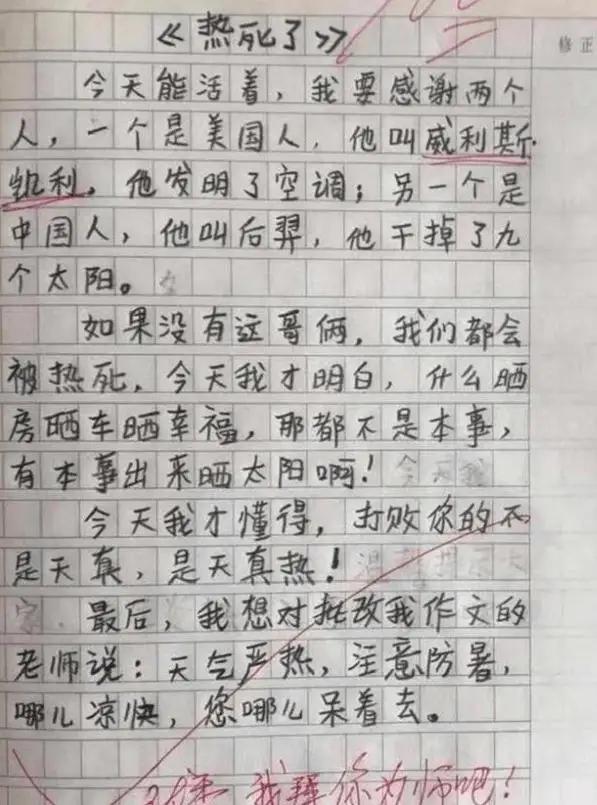 《热死了》
修正
今天能活着，我要感谢两个
人，一个是美国人，他叫威利斯·
凯利，他发明了空调；另一个是
中国人，他叫后羿，他干掉了九
个太阳。
如果没有这哥俩，我们都会
被热死，今天我才明白，什么晒
房晒车晒幸福，那都不是本事，
有本事出来晒太阳啊！
今天我才懂得，打败你的不
是天真，是天真热！
最后，我想对批改我作文的
老师说：天气严热，注意防暑，
哪儿凉快，您哪儿呆着去。
我拜你为师吧！